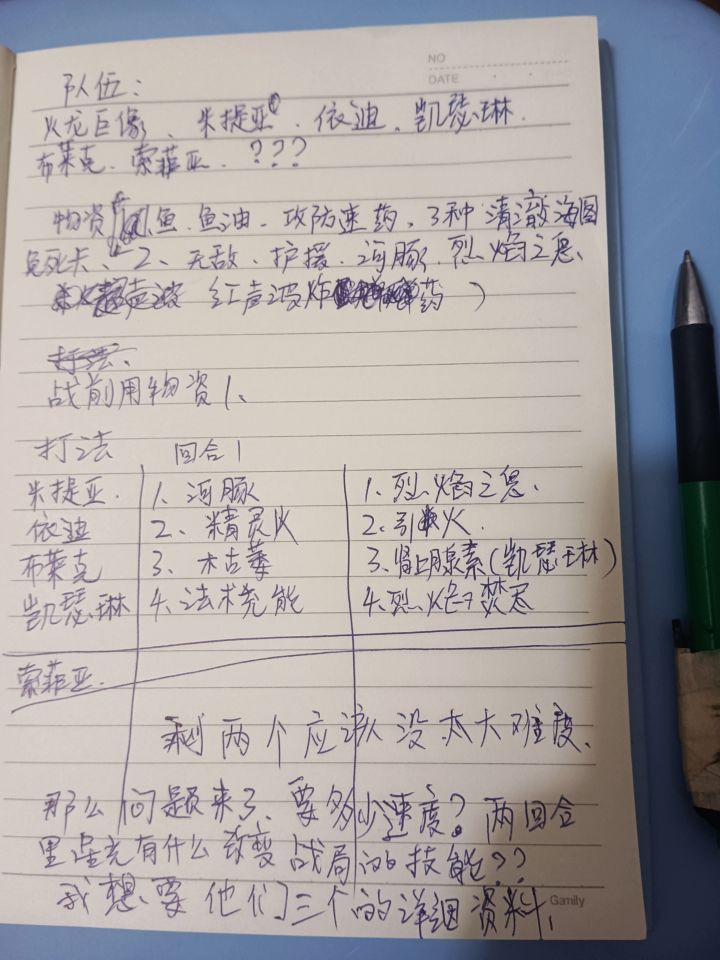 NO
DATE
队伍:
火龙巨像、朱提亚、依迪、凯瑟琳
布莱克、索菲亚、???
物资 鱼、鱼油、攻防速药、3种清澈海图
免死卡、2、无敌、护援、河豚、烈焰之息、
红声波炸 药)
打法、
战前用物资1、
打法 回合1
朱提亚. 1、河豚 1、烈焰之息、
依迪 2、精灵火 2、引火.
布莱克 3、木古莓 3、肾上腺素(凯瑟琳)
凯瑟琳 4、法术充能 4、烈焰焚尽
索菲亚.
剩两个应该没太大难度、
那么问题来了、要多少速度?两回合
里星充有什么改变战局的技能??
我想要他们三个的详细资料、
Gamily